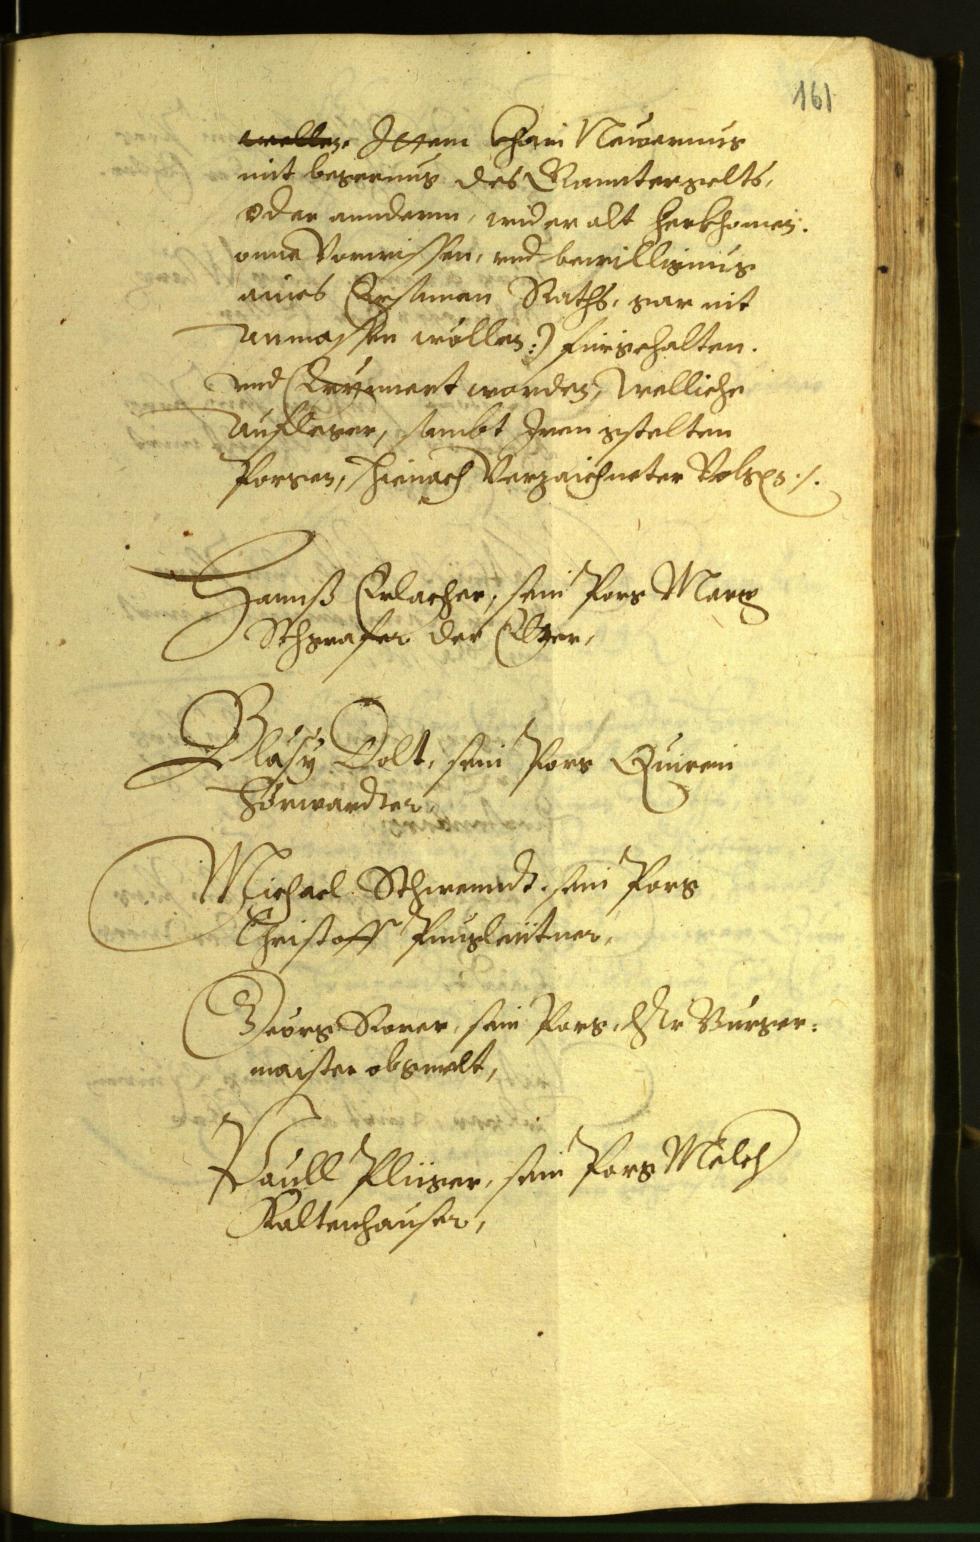 161
wellen. Jttem khain Neuerung
mit begerung des Rauntergelts,
oder anndern, wider alt herkhomen:
onne Vorwissen, und bewilligung
aines Ersamen Raths, gar nit
anmassen wöllen:) fürgehalten.
und worden, Welliche
Aufleger, sambt Jren gstelten
Porgen, hienach Verzaichneter Volgen ./.
Hannß Erlacher, sein Porg Marx
Schgrafer der Elter,
Bläsy Dolt, sein Porg Quirein
Förwardter
Michael Schwemdt, sein Porg
Christoff
Georg Rorer, sein Porg, Herr Burger:
maister obgmelt,
Paull Pliger, sein Porg Melch
Kaltenhauser,